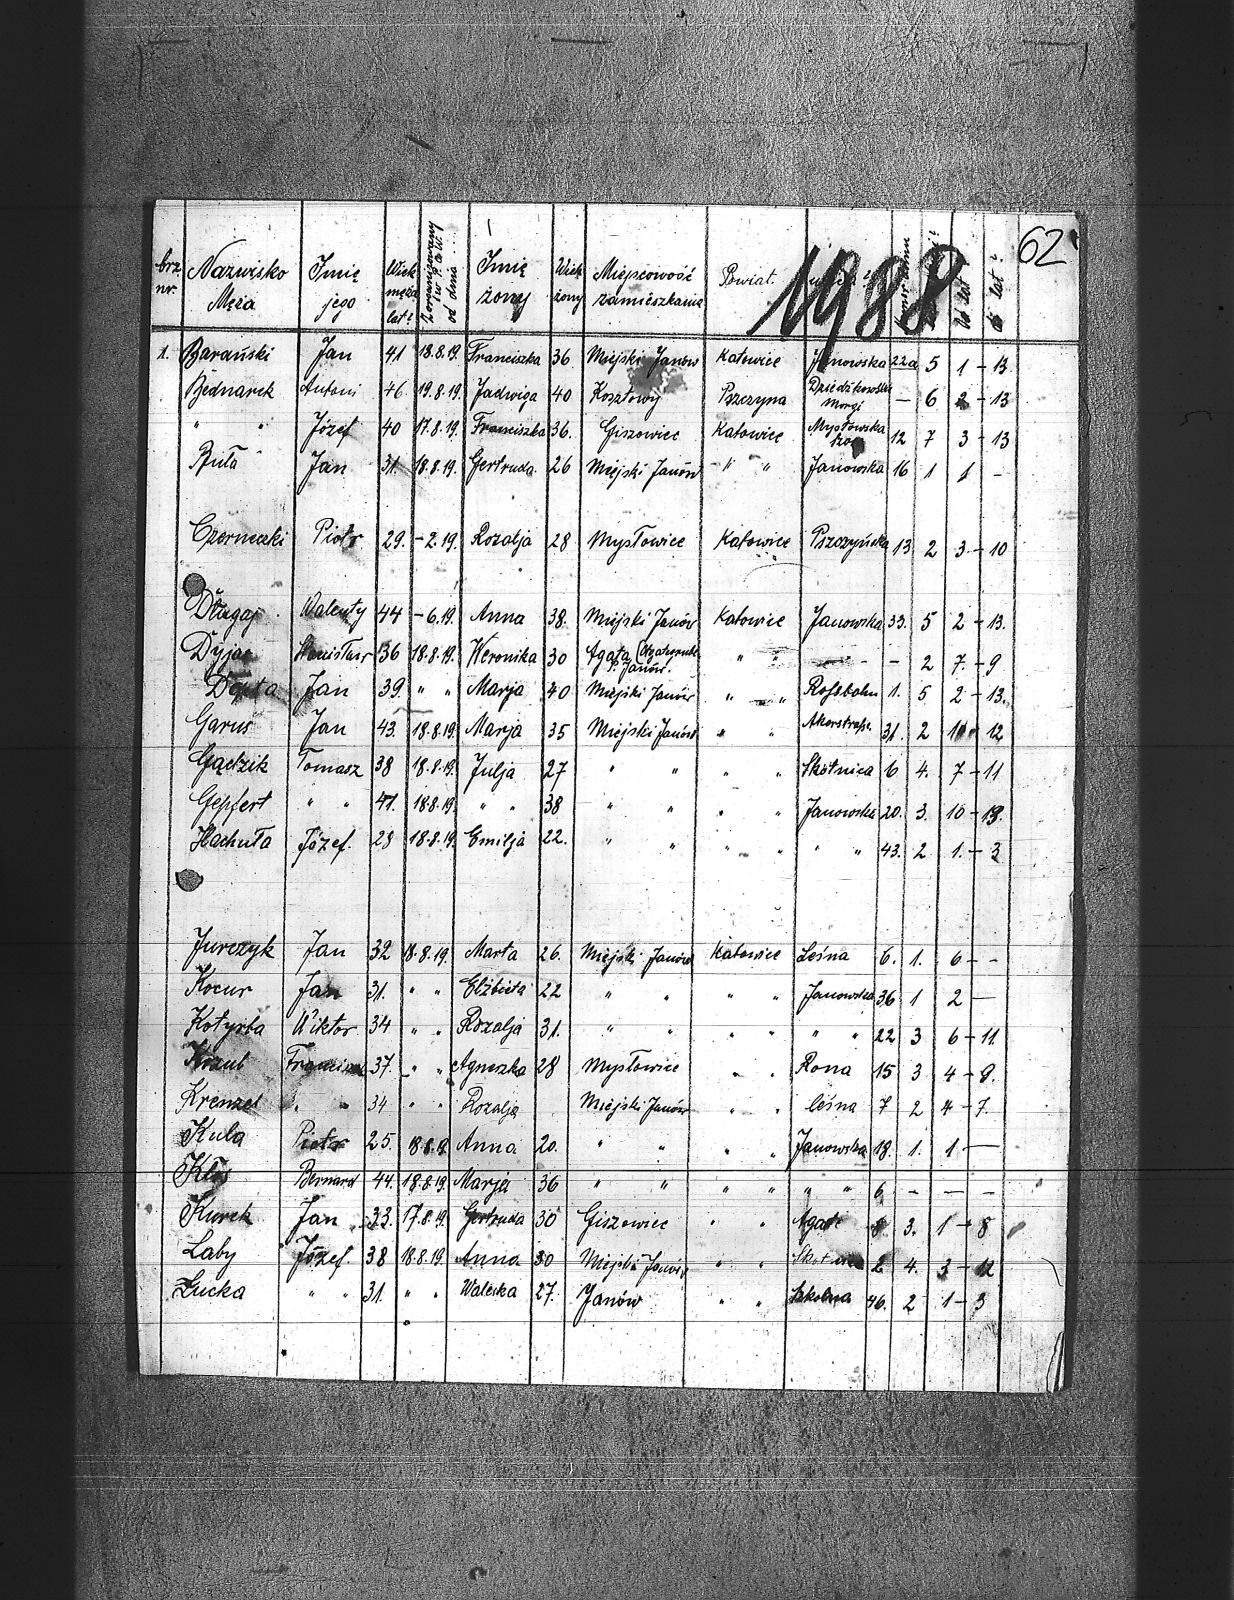 62
1988
brz nr. Nazwisko Męża Imię jego Wiek męża lat? Zorganizowany w P.O.W. od dnia Imię żony Wiek żony Miejscowość zamieszkania Powiat lat? lat?
1. Barański Jan 41 18.8.19. Franciszka 36 Miejski Janów Katowice Janowska 22a 5 1 - 13.
Bednarek Antoni 46. 19.8.19. Jadwiga 40 Kosztowy Pszczyna Morgi — 6 2 - 13
" " Józef 40 17.8.19. Franciszka 36. Giszowiec Katowice Mysłowska 12 7 3 - 13
Buła Jan 31. 18.8.19. Gertruda 26 Miejski Janów " " Janowska 16 1 1 -
Czernecki Piotr 29. -2.19. Rozalja 28 Mysłowice Katowice Pszczyńska 13 2 3 - 10
Długaj Walenty 44 -6.19. Anna 38. Miejski Janów Katowice Janowska 33. 5 2 - 13.
36 18.8.19. Weronika 30 Agata p. Janów. " " — - 2 7. - 9
Jan 39. " " Marja 40 Miejski Janów " " Rossbahn 1. 5. 2 - 13.
Garus Jan 43. 18.8.19. Marja 35 Miejski Janów " " 31. 2 - 12
Gądzik Tomasz 38 18.8.19. Julja 27 " " " " Skotnica 6 4. 7 - 11
Gepfert " " 41. 18.8.19. " " 38 " " " " Janowska 20. 3. 10 - 13.
Hachuła Józef. 28 18.8.19. Emilja 22. " " " " " " 43. 2 1. - 3
Jurczyk Jan 32 18.8.19. Marta 26. Miejski Janów Katowice Leśna 6. 1. 6 - -
Kocur Jan 31. " " Elżbieta 22 " " " " Janowska 36 1 2 —
Kotyrba Wiktor 34 " " Rozalja 31. " " " " " " 22 3 6 - 11
Kozub 37. " " Agnieszka 28 Mysłowice " " Rona 15 3 4 - 9.
Krenzel " " 34 " " Rozalja Miejski Janów " " Leśna 7 2 4 - 7.
Kula Piotr 25. 18.8.19. Anna 20. " " " " Janowska 18. 1. 1 —
Kłos Bernard 44. 18.8.19. Marja 36 " " " " " " 6. - — -
Kurek Jan 33. 17.8.19. Gertruda 30 Giszowiec " " Agate 8 3. 1 - 8
Laby Józef. 38 18.8.19. Anna 30 Miejski Janów " " 2 4. 3 - 12
Łucka " " 31. " " Waleska 27. Janów " " Szkolna 46. 2 1 - 3